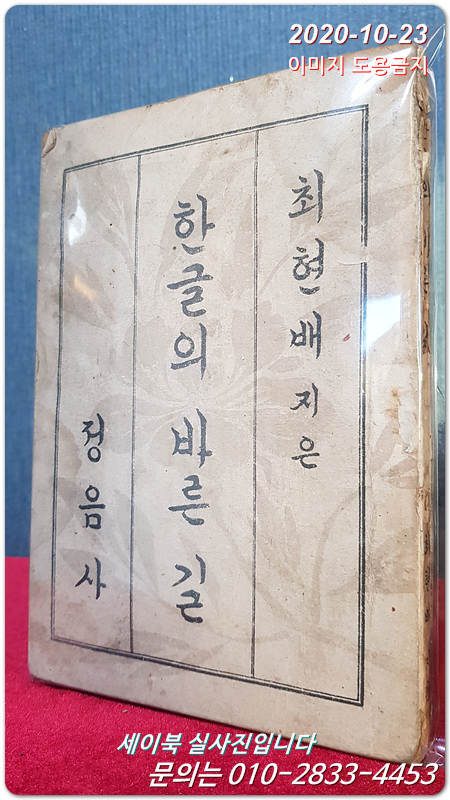 2020-10-23
이미지 도용금지
최현배 지은
한글의 바른 길
정음사
세이북 실사진입니다
문의는 010-2833-4453